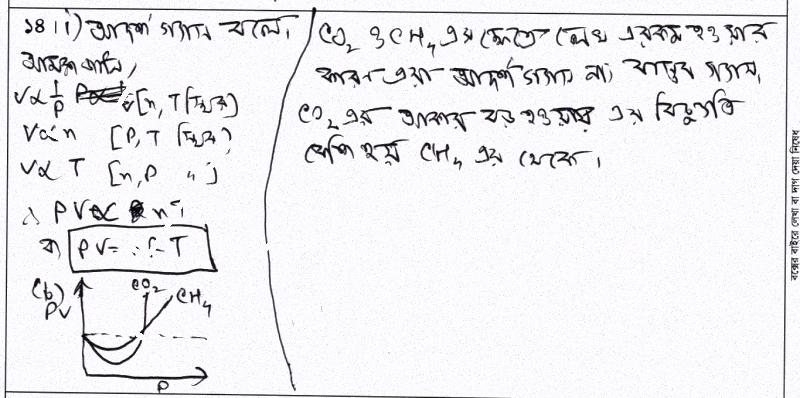 ১৪। i) আদর্শ গ্যাস বলে।
আমরা জানি,
V∝ 1/P [n, T স্থির]
V∝n [P, T স্থির]
V∝ T [n, P " ]
∴ PV∝ nT
বা, PV= T
(b)
PV
CO₂
CH₄
P
CO₂ ও CH₄ এর ক্ষেত্রে লেখ এরকম হওয়ার
কারণ এরা আদর্শ গ্যাস না, বাস্তব গ্যাস,
CO₂ এর আকার বড় হওয়ায় এর বিচ্যুতি
বেশি হয় CH₄ এর থেকে।
বক্সের বাইরে লেখা বা দাগ দেয়া নিষেধ